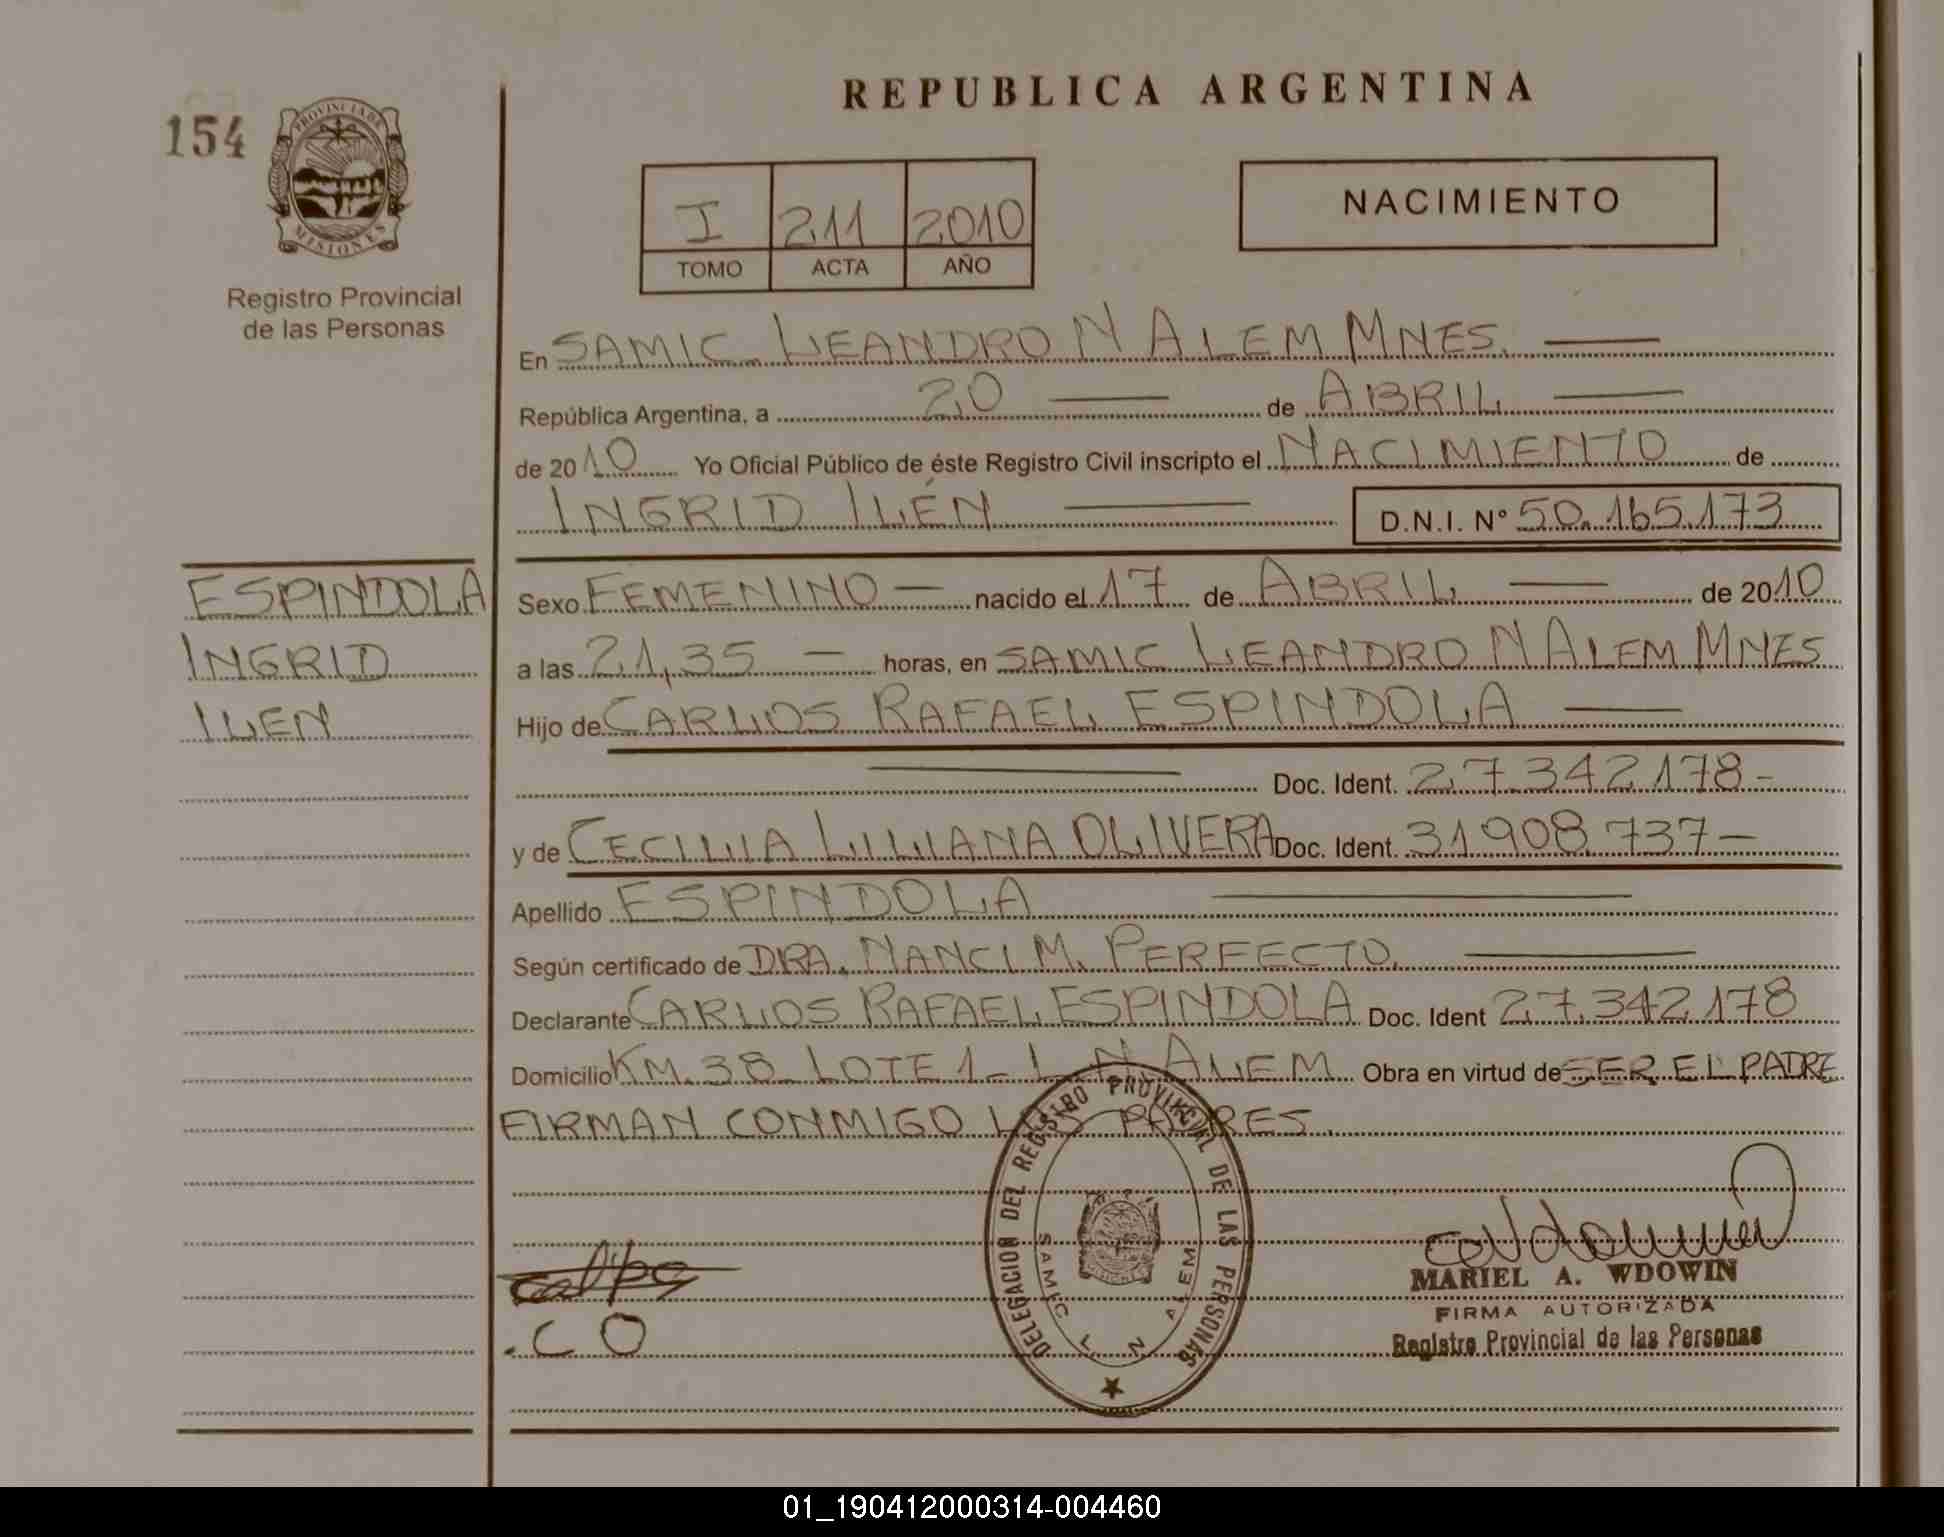 REPUBLICA ARGENTINA
154
PROVINCIA DE
MISIONES
Registro Provincial
de las Personas
I 211 2010
TOMO ACTA AÑO
NACIMIENTO
En SAMIC LEANDRO N ALEM MNES.
República Argentina, a 20 de ABRIL
de 2010 Yo Oficial Público de éste Registro Civil inscripto el NACIMIENTO de
INGRID ILÉN D.N.I. N° 50.165.173
ESPINDOLA
INGRID
ILEN
Sexo FEMENINO nacido el 17 de ABRIL de 2010
a las 21,35 horas, en SAMIC LEANDRO N ALEM MNES
Hijo de CARLOS RAFAEL ESPINDOLA
Doc. Ident. 27.342.178-
y de CECILIA LILIANA OLIVERA Doc. Ident. 31908.737-
Apellido ESPINDOLA
Según certificado de DRA. NANCI M. PERFECTO.
Declarante CARLOS RAFAEL ESPINDOLA Doc. Ident 27.342.178
Domicilio KM. 38 LOTE 1 - L N ALEM Obra en virtud de SER EL PADRE
FIRMAN CONMIGO LOS PADRES.
DELEGACION DEL REGISTRO PROVINCIAL DE LAS PERSONAS
SAMIC L. N ALEM
MARIEL A. WDOWIN
FIRMA AUTORIZADA
Registro Provincial de las Personas
.C O
01_190412000314-004460